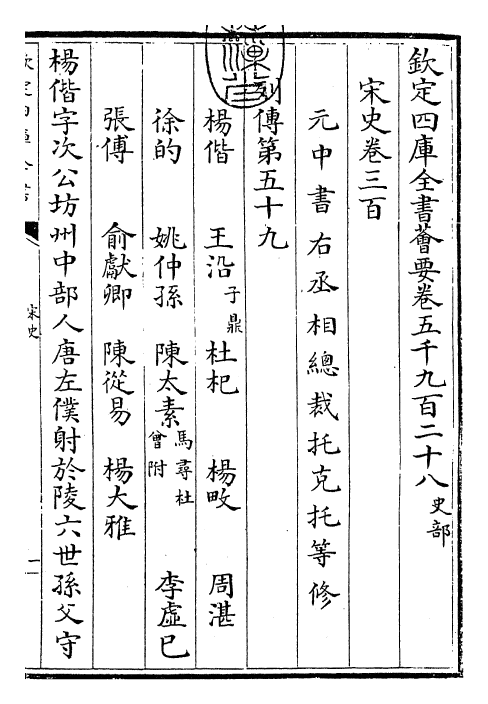 欽定四庫全書薈要卷五千九百二十八 史部
宋史卷三百
元中書右丞相總裁托克托等修
列傳第五十九
楊偕 王沿 子鼎 杜杞 楊畋 周湛
徐的 姚仲孫 陳太素 馬尋 杜曾附 李虛己
張傅 俞獻卿 陳從易 楊大雅
楊偕字次公坊州中部人唐左僕射於陵六世孫父守
宋史
一